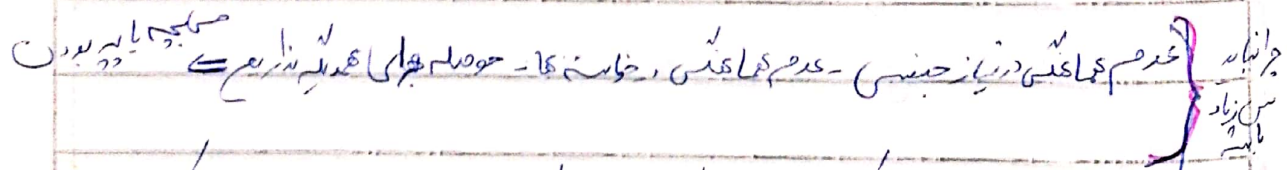 چرا نباید سن زیاد باشه
عدم هماهنگی در نیاز جنسی - عدم هماهنگی در خواسته ها - حوصله برای همدیگه نداریم ⇐ پا به پا بودن